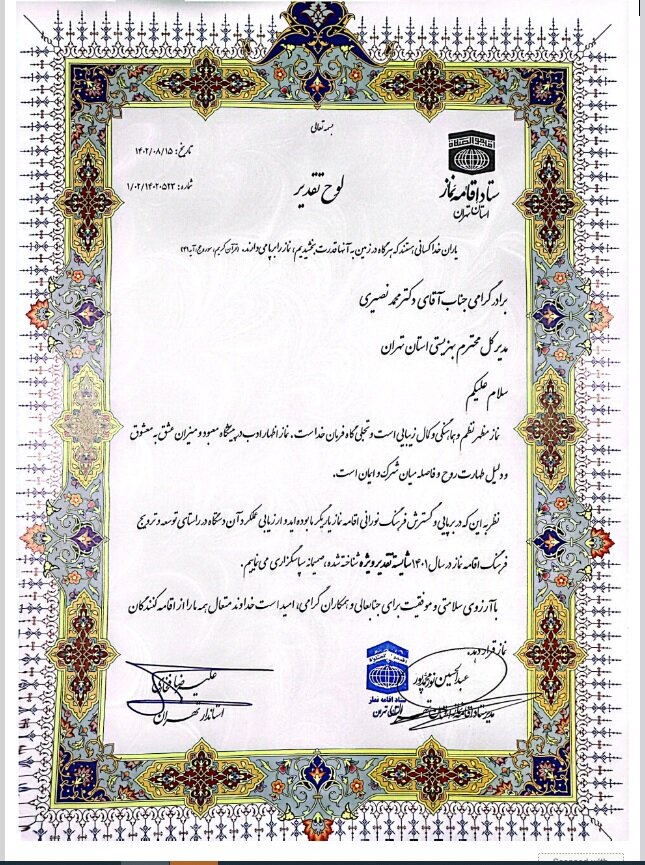 بسمه تعالی
تاریخ: ۱۴۰۲/۰۸/۱۵
شماره: ۱/۰۲/۱۴۰۲۰۵۲۳
ستاد اقامه نماز
استان تهران
لوح تقدیر
یاران خدا کسانی هستند که هرگاه در زمین به آنها قدرت بخشیدیم، نماز را برپا می‌دارند. (قرآن کریم، سوره حج، آیه ۴۱)
برادر گرامی جناب آقای دکتر محمد نصیری
مدیر کل محترم بهزیستی استان تهران
سلام علیکم
نماز مظهر نظم و هماهنگی و کمال زیبایی است و تجلی گاه فرمان خداست. نماز اظهار ادب در پیشگاه معبود و میزان عشق به معشوق
و دلیل طهارت روح و فاصله میان شرک و ایمان است.
نظر به این که در برپایی و گسترش فرهنگ نورانی اقامه نماز یاریگر ما بوده اید و ارزیابی عملکرد آن دستگاه در راستای توسعه و ترویج
فرهنگ اقامه نماز در سال ۱۴۰۱ شایسته تقدیر ویژه شناخته شده، صمیمانه سپاسگزاری می نماییم.
با آرزوی سلامتی و موفقیت برای جنابعالی و همکاران گرامی، امید است خداوند متعال همه ما را از اقامه کنندگان
نماز قرار دهد.
عبدالحسین نورمحمدپور
مدیر ستاد اقامه نماز استان تهران
ستاد اقامه نماز
استان تهران
علیرضا فخاری
استاندار تهران
Scanned with